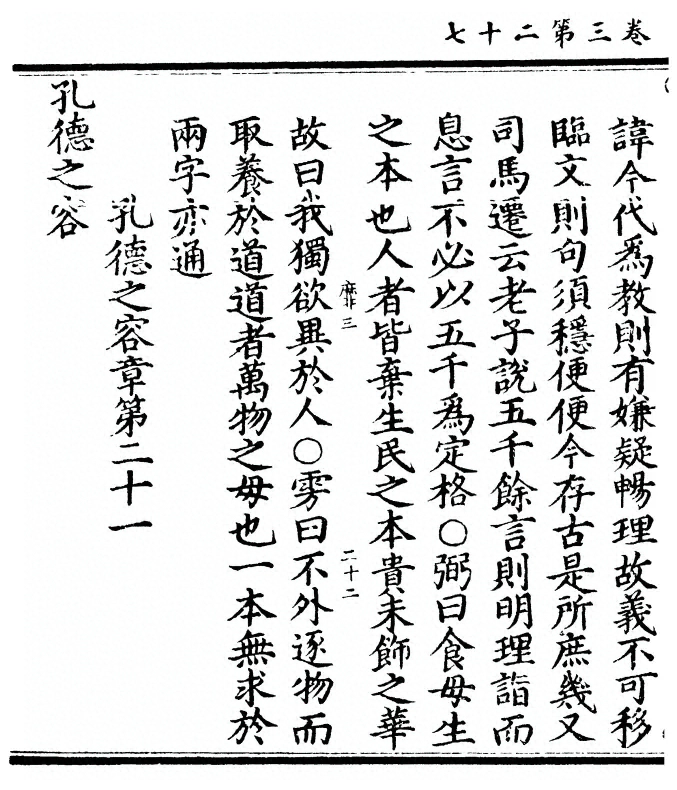 卷三第二十七
諱今代爲教則有嫌疑暢理故義不可移
臨文則句須穩便便今存古是所庶幾又
司馬遷云老子說五千餘言則明理詣而
息言不必以五千爲定格○弼曰食母生
之本也人者皆棄生民之本貴末飾之華
三
二十二
故曰我獨欲異於人○雱曰不外逐物而
取養於道道者萬物之母也一本無求於
兩字亦通
孔德之容章第二十一
孔德之容